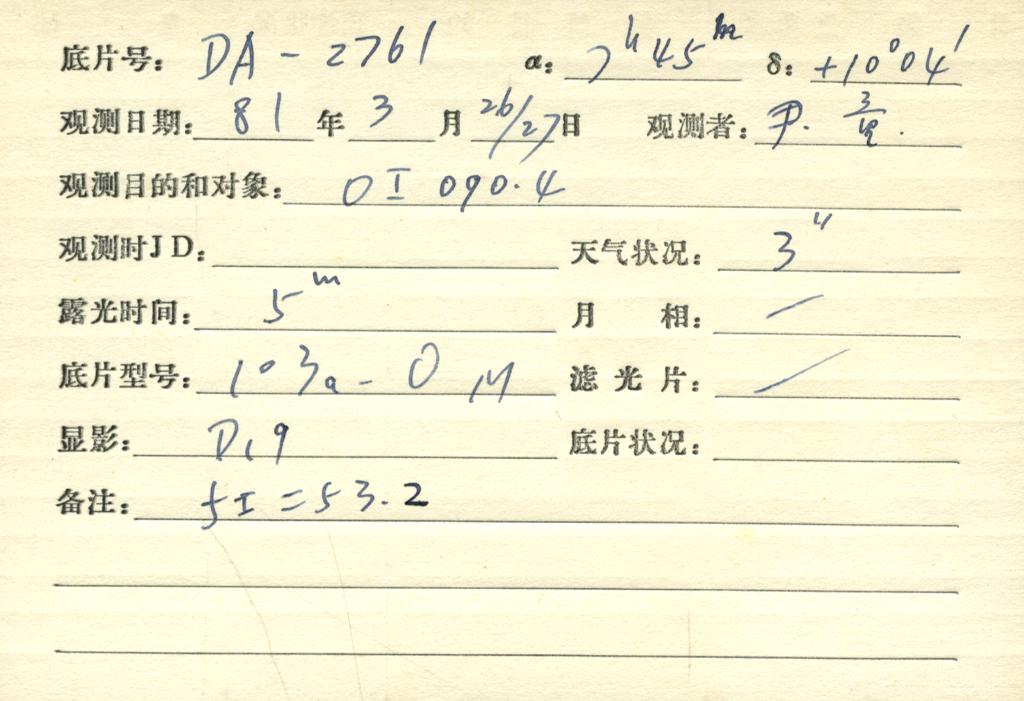 底片号: DA-2761 α: 7h45m δ: +10°04′
观测日期: 81年3月26/27日 观测者: 尹.
观测目的和对象: OI 090.4
观测时JD: 天气状况: 3″
露光时间: 5m 月 相: /
底片型号: 103a-O 滤光片: /
显影: D19 底片状况:
备注: fI=53.2